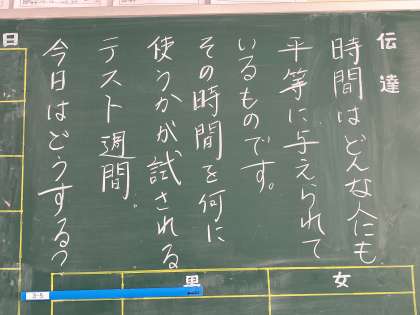 伝達
時間はどんな人にも
平等に与えられて
いるものです。
その時間を何に
使うかが試される
テスト週間。
今日はどうする?
日
女
男
3-5